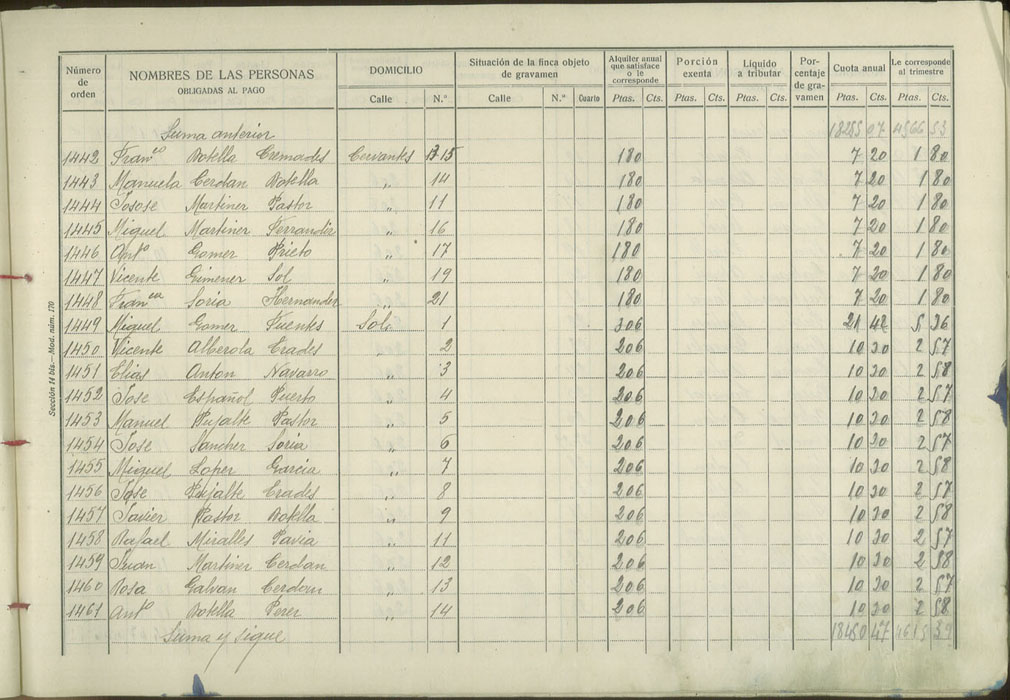 Sección 14 bis.—Mod. núm. 170
Número de orden | NOMBRES DE LAS PERSONAS OBLIGADAS AL PAGO | DOMICILIO | Situación de la finca objeto de gravamen | Alquiler anual que satisface o le corresponde | Porción exenta | Líquido a tributar | Porcentaje de gravamen | Cuota anual | Le corresponde al trimestre
Calle | N.º | Calle | N.º | Cuarto | Ptas. | Cts. | Ptas. | Cts. | Ptas. | Cts. | Ptas. | Cts. | Ptas. | Cts.
Suma anterior 18255 07 4566 53
1442 Franco Botella Cremades Cervantes 15 180 7 20 1 80
1443 Manuela Cerdan Botella " 14 180 7 20 1 80
1444 Josose Martinez Pastor " 11 180 7 20 1 80
1445 Miguel Martinez Ferrandiz " 16 180 7 20 1 80
1446 Anto Gomez Prieto " 17 180 7 20 1 80
1447 Vicente Gimenez Sol " 19 180 7 20 1 80
1448 Franca Soria Hernandez " 21 180 7 20 1 80
1449 Miguel Gomez Fuentes Sol 1 306 21 42 5 36
1450 Vicente Alberola Crades " 2 206 10 30 2 57
1451 Elias Anton Navarro " 3 206 10 30 2 58
1452 Jose Español Puerto " 4 206 10 30 2 57
1453 Manuel Pujalte Pastor " 5 206 10 30 2 58
1454 Jose Sanchez Soria " 6 206 10 30 2 57
1455 Miguel Lopez Garcia " 7 206 10 30 2 58
1456 Jose Pujalte Crades " 8 206 10 30 2 57
1457 Javier Pastor Botella " 9 206 10 30 2 58
1458 Rafael Miralles Pavia " 11 206 10 30 2 57
1459 Juan Martinez Cerdan " 12 206 10 30 2 58
1460 Rosa Galvan Cerdan " 13 206 10 30 2 57
1461 Anto Botella Perez " 14 206 10 30 2 58
Suma y sigue 18450 47 4615 39